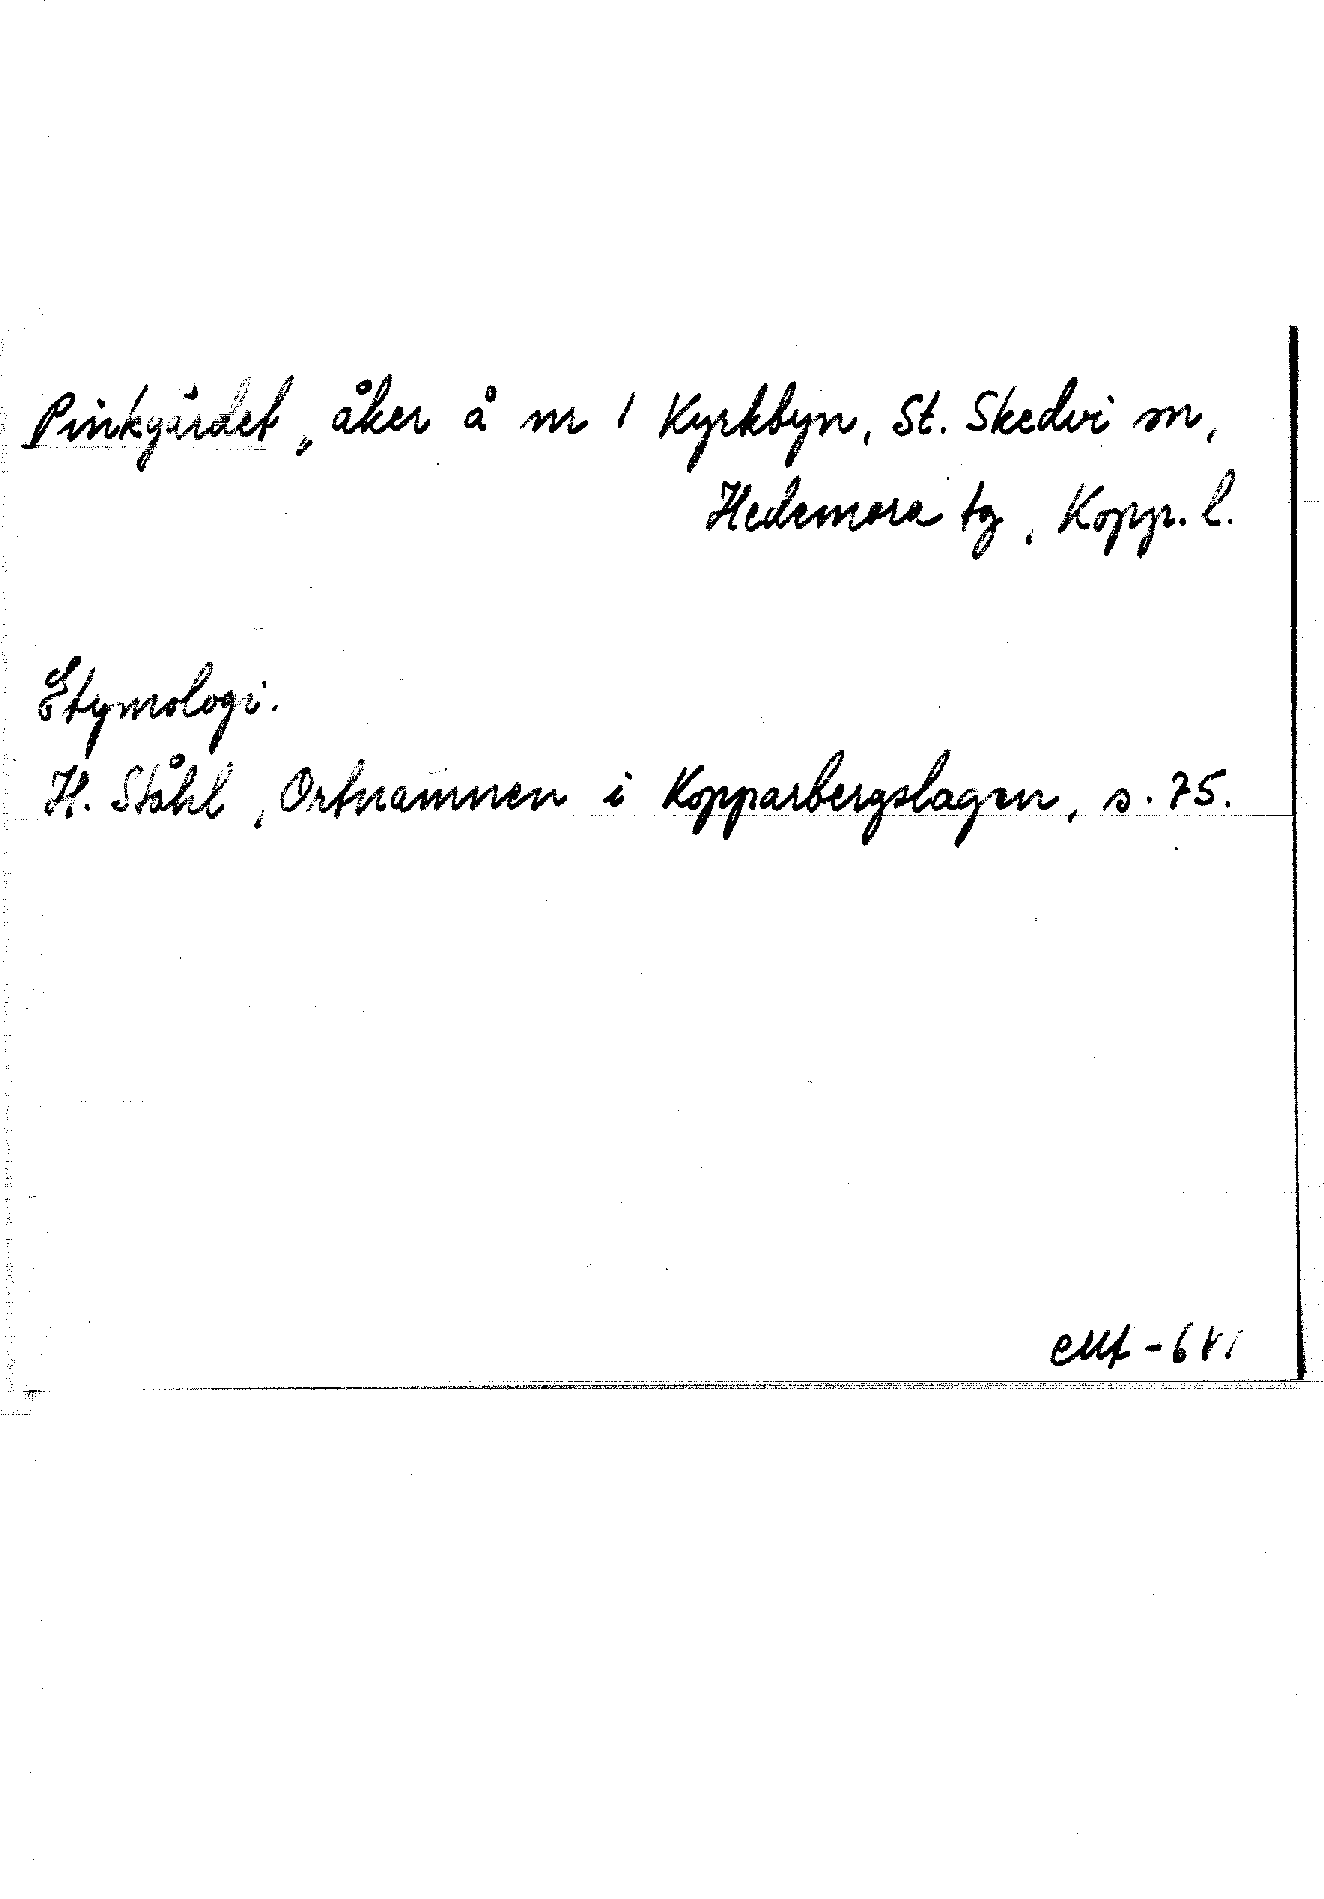 Pinkgärdet, åker å nr 1 Kyrkbyn, St. Skedvi sn,
Hedemora tg, Kopp. l.
Etymologi.
H. Ståhl, Ortnamnen i Kopparbergslagen, s. 75.